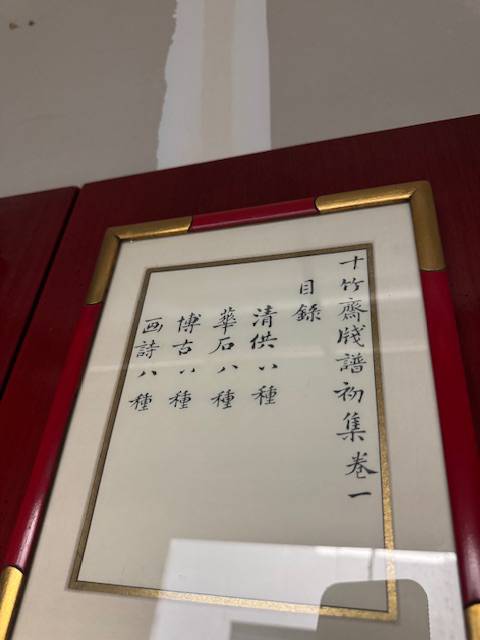 十竹齋牋譜初集卷一
目錄
清供八種
華石八種
博古八種
画詩八種